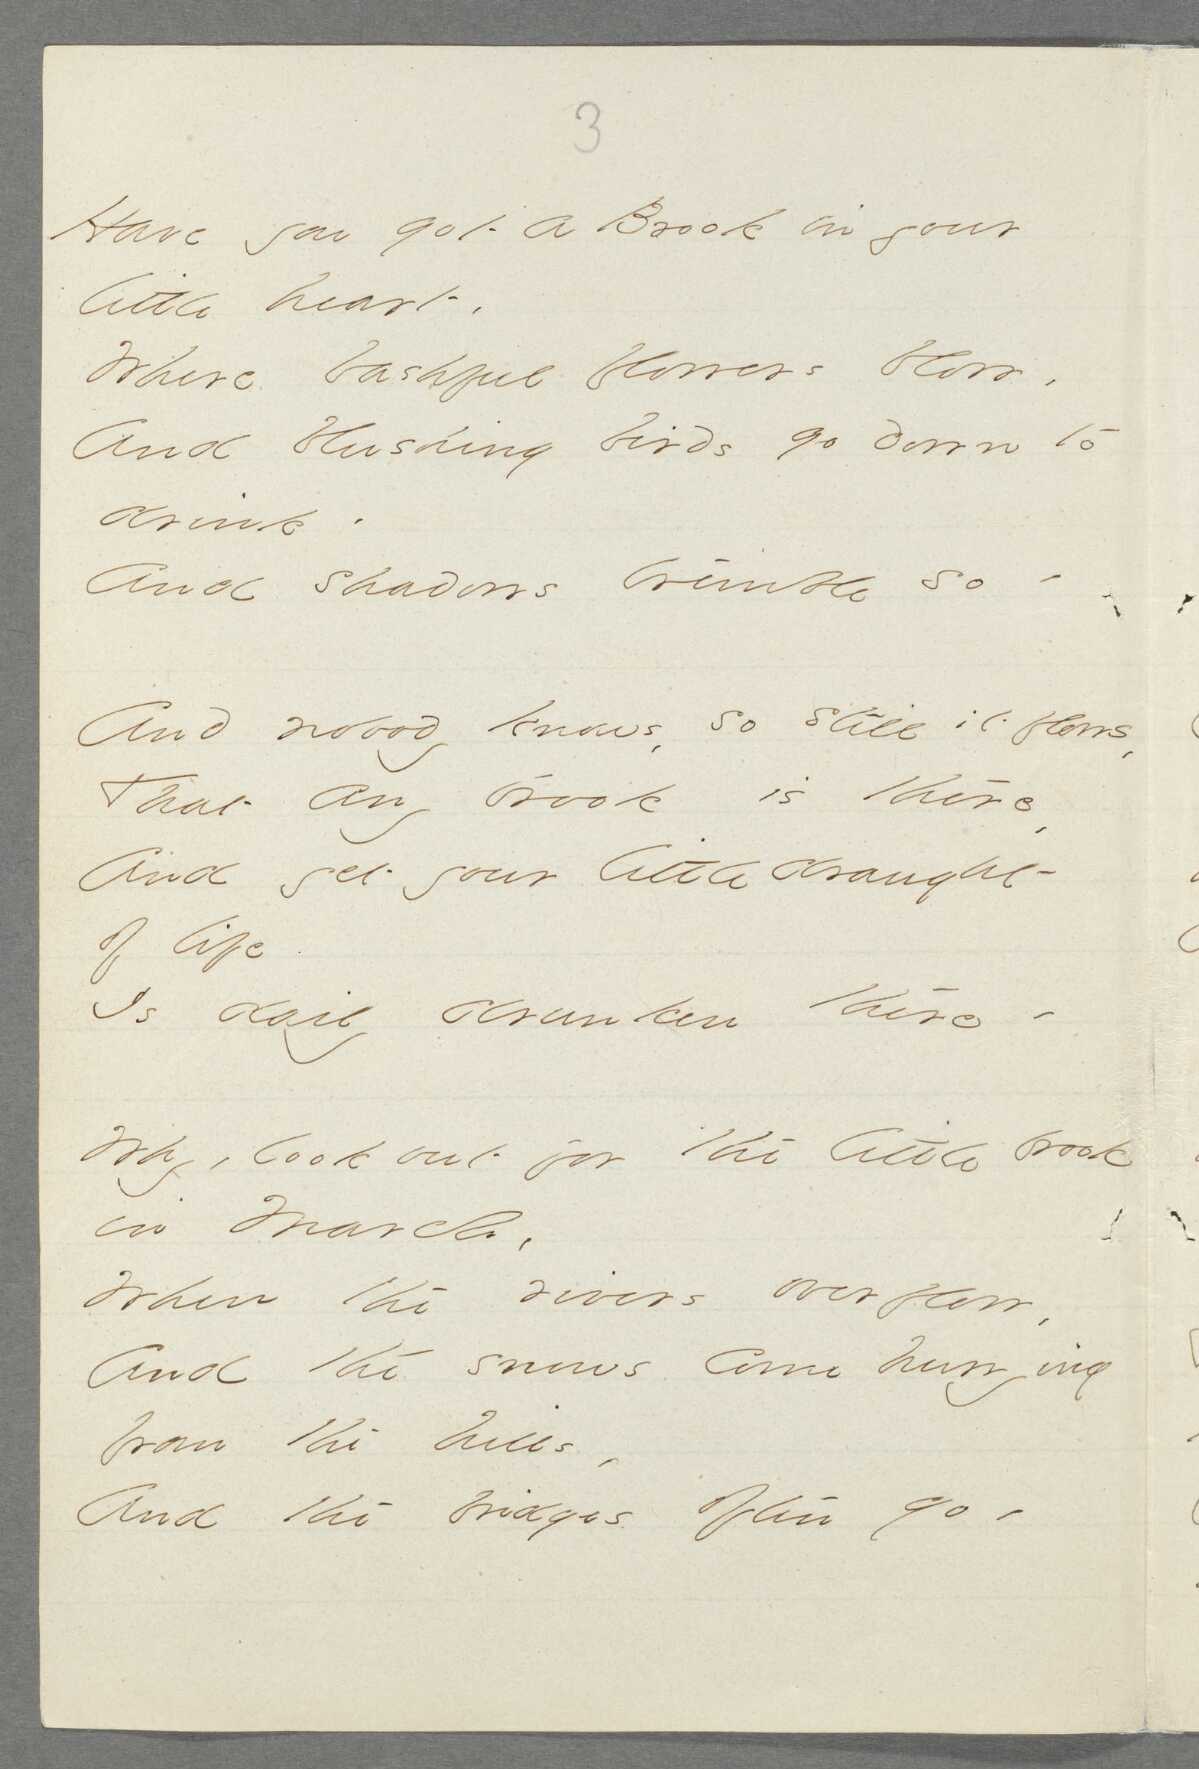 3
Have you got a Brook in your
little heart,
Where bashful flowers blow,
And blushing birds go down to
drink -
And shadows tremble so -
And nobody knows, so still it flows,
That any brook is there,
And yet your little draught
of life
Is daily drunken there -
Why, look out for the little brook
in March,
When the rivers overflow,
And the snows come hurrying
from the hills,
And the bridges often go -